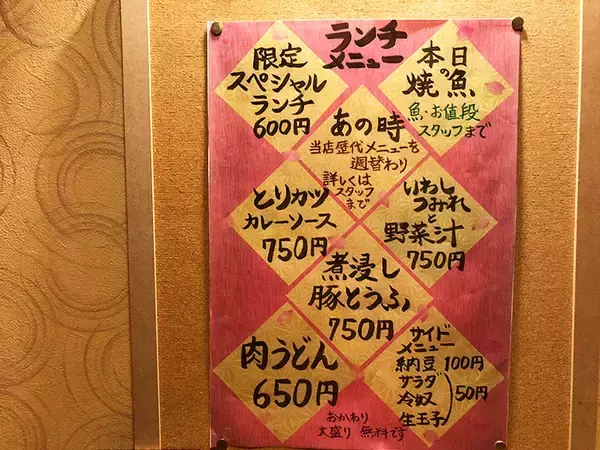 ランチ
メニュー
限定
スペシャル
ランチ
600円
本日
の
焼魚
魚・お値段
スタッフまで
あの時
当店歴代メニューを
週替わり
詳しくは
スタッフ
まで
とりカツ
カレーソース
750円
いわし
つみれ
と
野菜汁
750円
煮浸し
豚とうふ
750円
肉うどん
650円
サイド
メニュー
納豆 100円
サラダ
冷奴
生玉子
50円
おかわり
大盛り 無料です